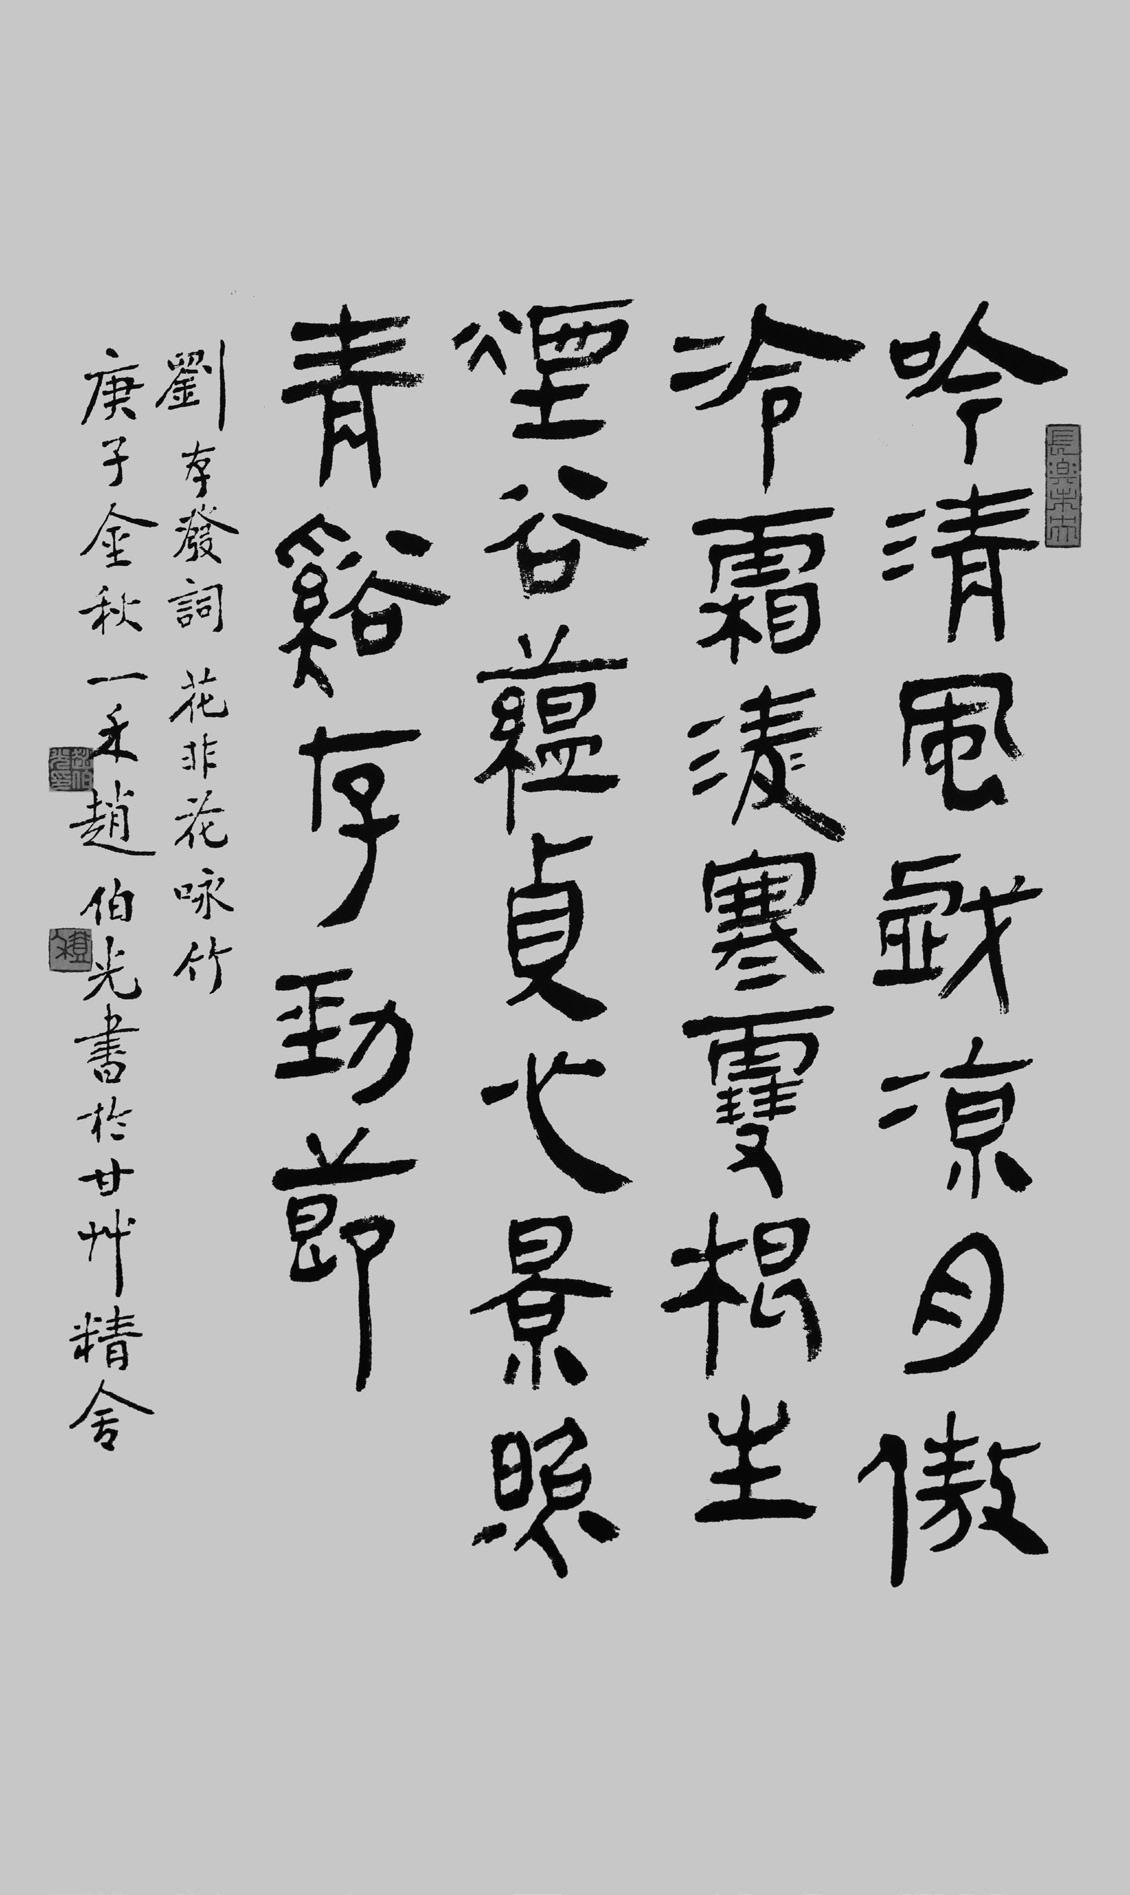 吟清風戲涼月傲
冷霜淩寒雪根生
煙谷蘊貞心景照
青谿存勁節
劉存發詞 花非花 咏竹
庚子金秋一禾趙伯光書於甘艸精舍
長樂未央